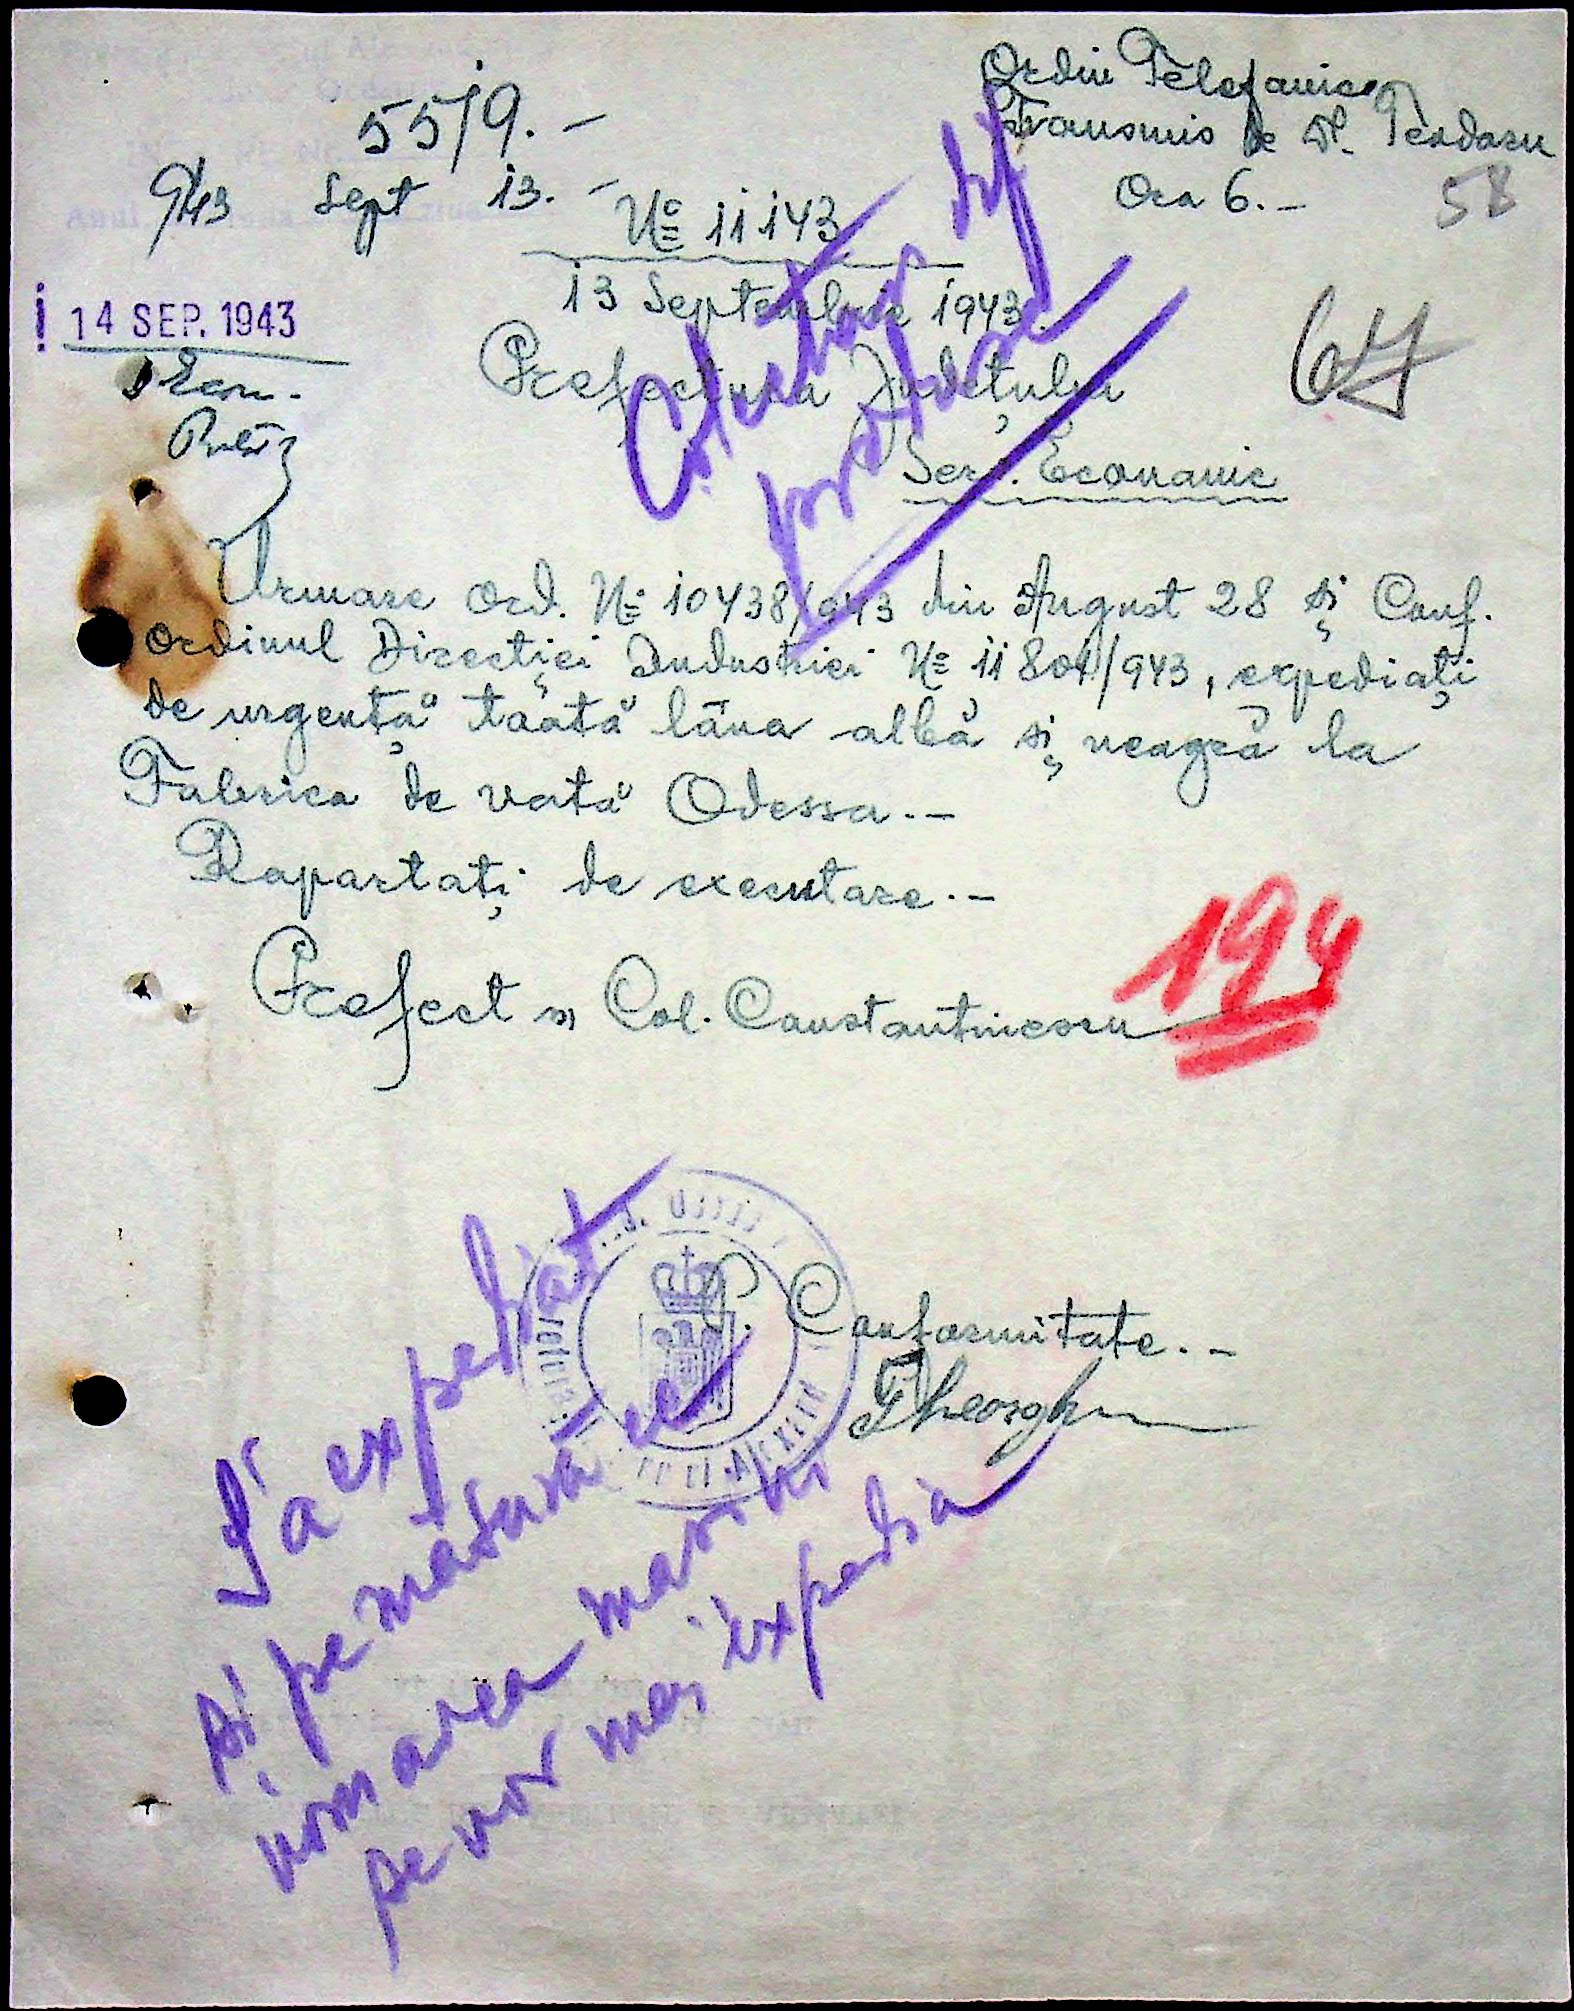 Ordin Telefonic
Transmis de D. Teodosiu
Ora 6.-
5519.-
943 Sept 13.-
58
Nº 11143
13 Septembrie 1943.
14 SEP. 1943
Prefectura Județului
64
Serv. Economic
Urmare ord. Nº 10438/943 din August 28 și Conf.
ordinul Direcției Industriei Nº 11801/943, expediați
de urgență toată lâna albă și neagră la
Fabrica de vată Odessa.-
Raportați de executare.-
Prefect ss Col. Constantinescu
194
P. Conformitate.-
S'a expediat
și pe măsură ce
se vor mai expedia